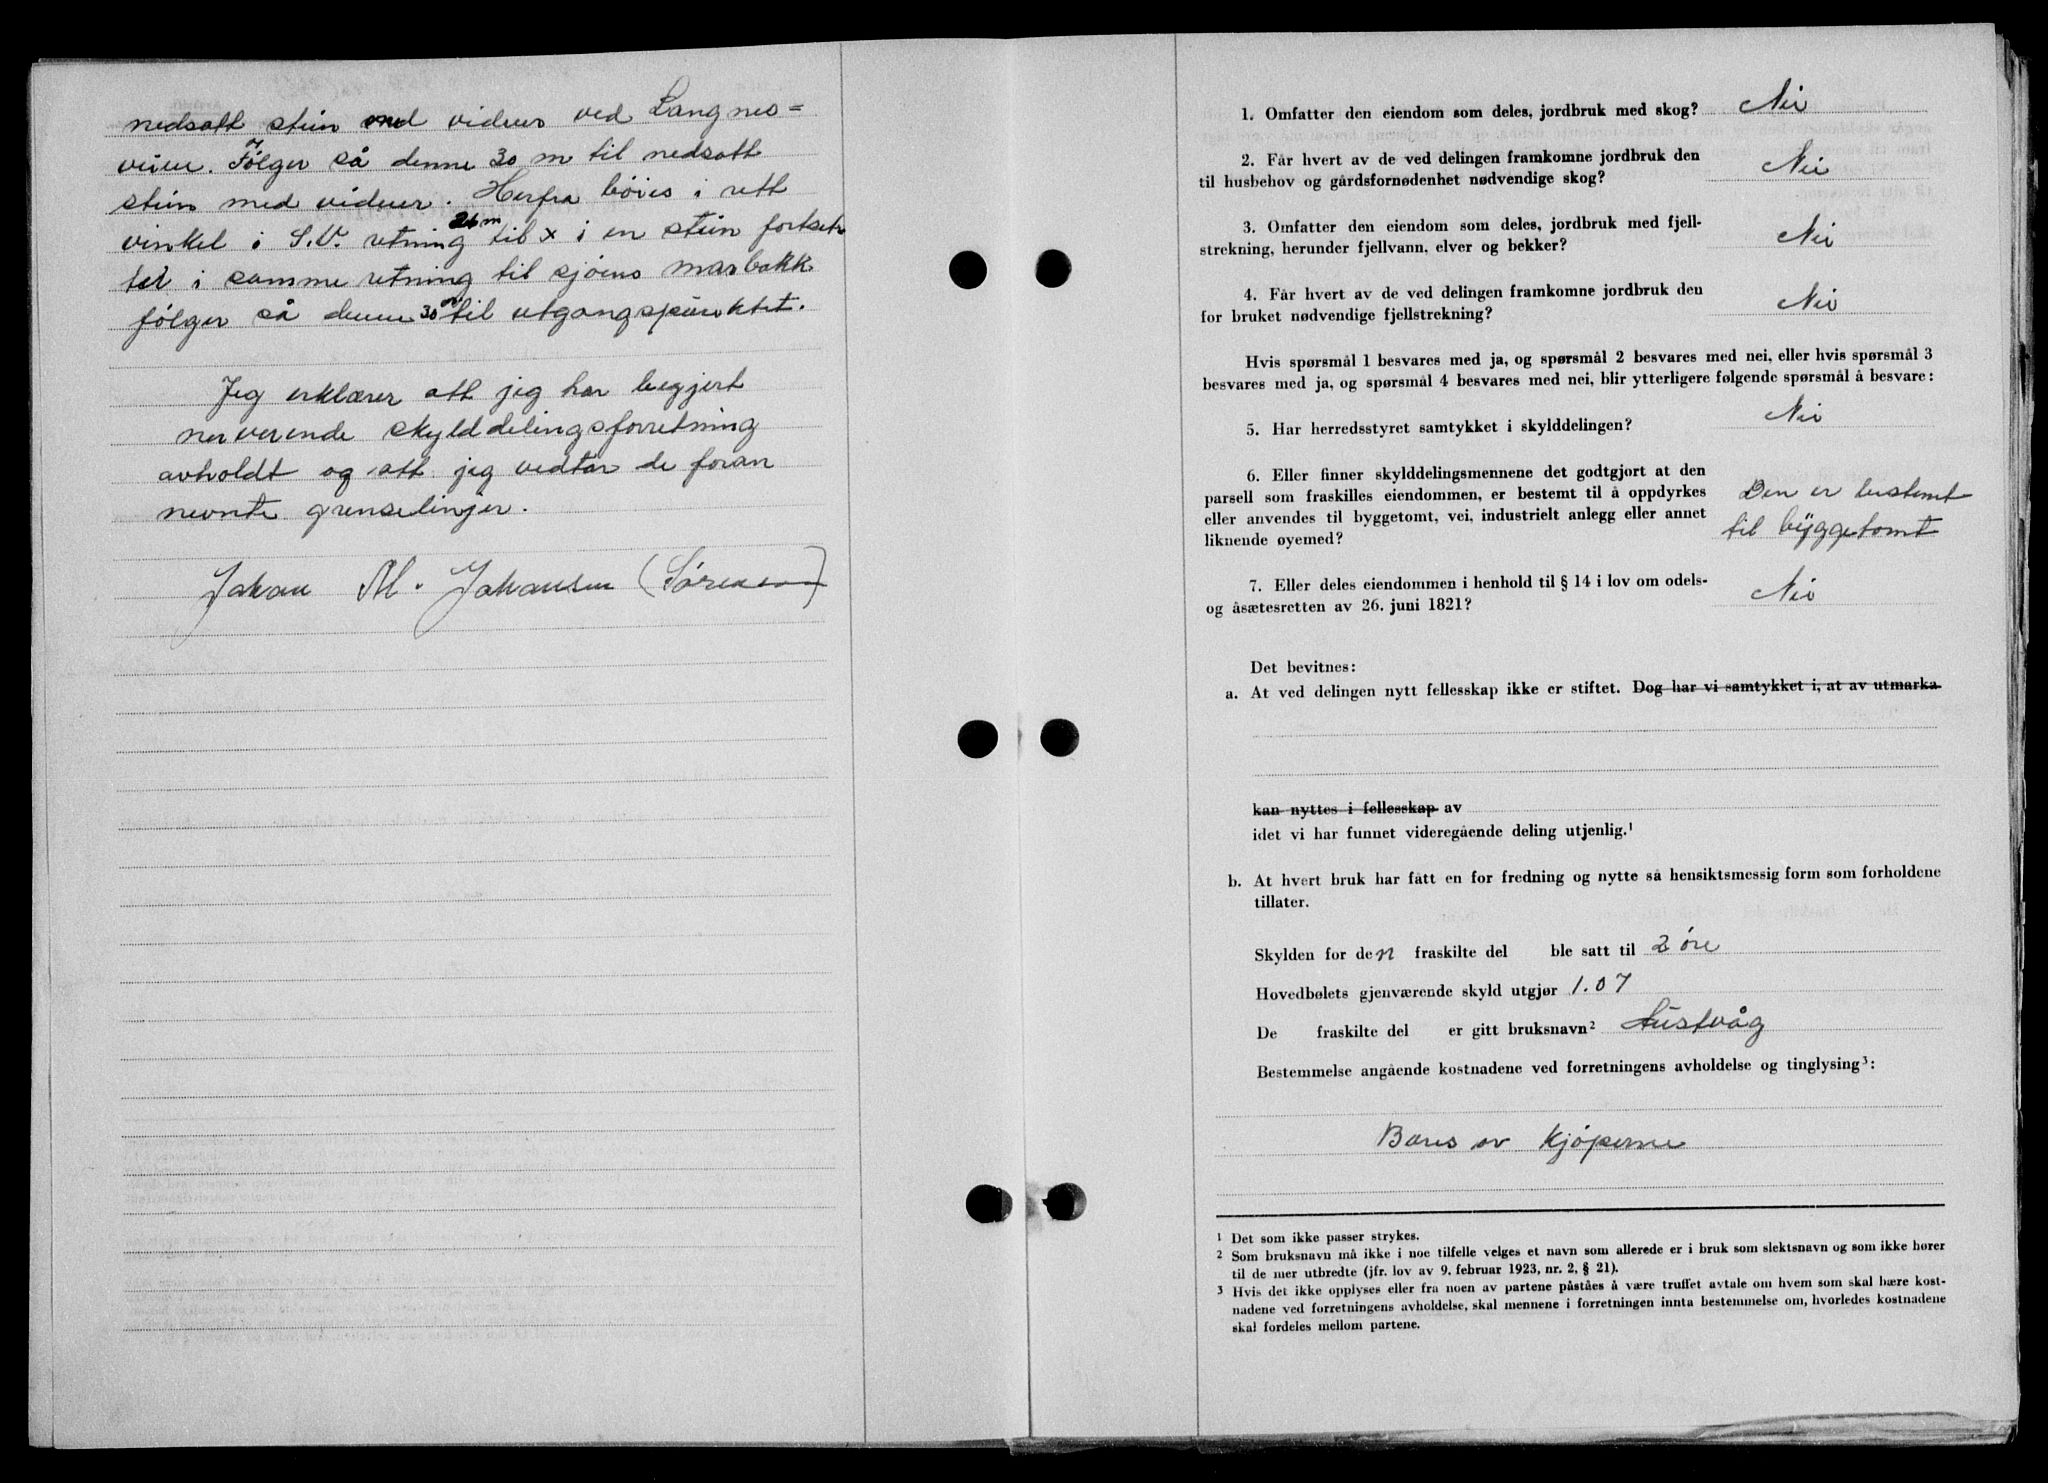 nedsatt stein med vidner ved Langnes=
veien. Følger så denne 30 m til nedsatt
stein med vidner. Herfra bøies i rett
vinkel i S.V. retning 26 m til x i en stein fortset
ter i samme retning til sjøens marbakk
følger så denne 30 m til utgangspunktet.
Jeg erklærer att jeg har begjert
nerverende skylddelingsforretning
avholdt og att jeg vedtar de foran
nevnte grenselinjer.
Johan M. Johansen (Sørensen)
1. Omfatter den eiendom som deles, jordbruk med skog? Nei
2. Får hvert av de ved delingen framkomne jordbruk den
til husbehov og gårdsfornødenhet nødvendige skog? Nei
3. Omfatter den eiendom som deles, jordbruk med fjell-
strekning, herunder fjellvann, elver og bekker? Nei
4. Får hvert av de ved delingen framkomne jordbruk den
for bruket nødvendige fjellstrekning? Nei
Hvis spørsmål 1 besvares med ja, og spørsmål 2 besvares med nei, eller hvis spørsmål 3
besvares med ja, og spørsmål 4 besvares med nei, blir ytterligere følgende spørsmål å besvare:
5. Har herredsstyret samtykket i skylddelingen? Nei
6. Eller finner skylddelingsmennene det godtgjort at den
parsell som fraskilles eiendommen, er bestemt til å oppdyrkes
eller anvendes til byggetomt, vei, industrielt anlegg eller annet
liknende øyemed?
Den er bestemt
til byggetomt
7. Eller deles eiendommen i henhold til § 14 i lov om odels-
og åsætesretten av 26. juni 1821? Nei
Det bevitnes:
a. At ved delingen nytt fellesskap ikke er stiftet. Dog har vi samtykket i, at av utmarka
kan nyttes i fellesskap av
idet vi har funnet videregående deling utjenlig.¹
b. At hvert bruk har fått en for fredning og nytte så hensiktsmessig form som forholdene
tillater.
Skylden for den fraskilte del ble satt til 2 øre
Hovedbølets gjenværende skyld utgjør 1.07
De fraskilte del er gitt bruksnavn² Austvåg
Bestemmelse angående kostnadene ved forretningens avholdelse og tinglysing³:
Bæres av kjøperne
¹ Det som ikke passer strykes.
² Som bruksnavn må ikke i noe tilfelle velges et navn som allerede er i bruk som slektsnavn og som ikke hører
til de mer utbredte (jfr. lov av 9. februar 1923, nr. 2, § 21).
³ Hvis det ikke opplyses eller fra noen av partene påståes å være truffet avtale om hvem som skal bære kost-
nadene ved forretningens avholdelse, skal mennene i forretningen innta bestemmelse om, hvorledes kostnadene
skal fordeles mellom partene.